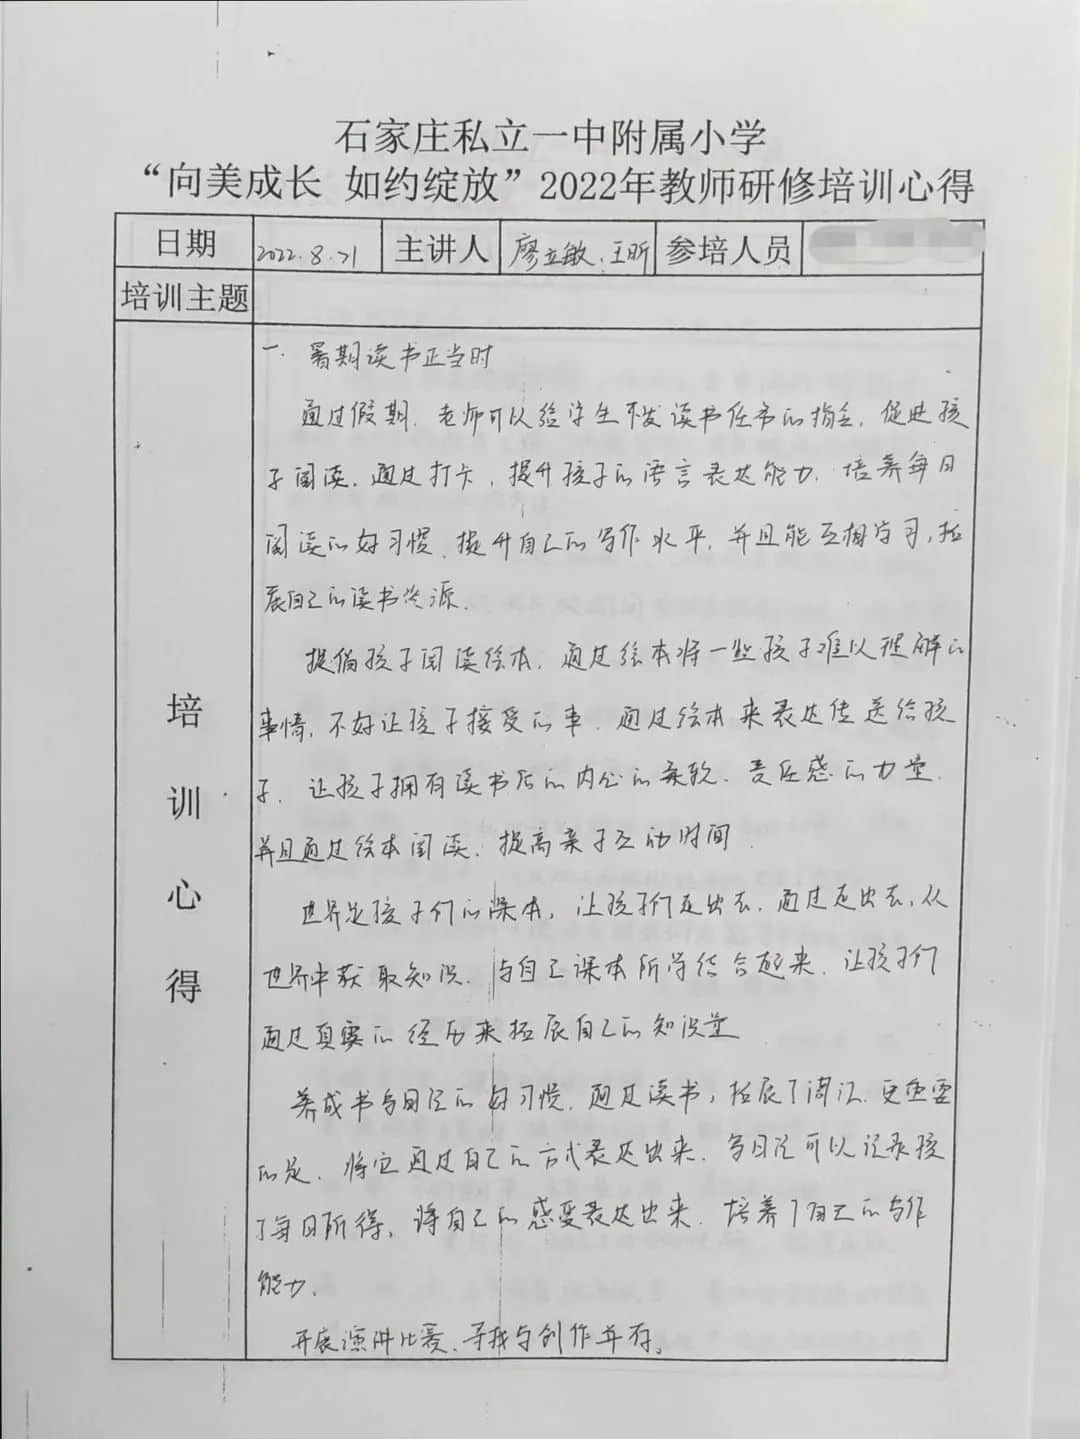 石家庄私立一中附属小学
“向美成长 如约绽放”2022年教师研修培训心得
日期 2022.8.21 主讲人 廖立敏、王昕 参培人员
培训主题
培训心得
一. 暑期读书正当时
通过假期, 老师可以给学生下发读书任务的指令, 促进孩
子阅读. 通过打卡, 提升孩子的语言表达能力. 培养每日
阅读的好习惯. 提升自己的写作水平, 并且能互相学习, 拓
展自己的读书资源.
提倡孩子阅读绘本. 通过绘本将一些孩子难以理解的
事情, 不好让孩子接受的事. 通过绘本来表达传送给孩
子. 让孩子拥有读书后的内心的柔软. 责任感的力量.
并且通过绘本阅读. 提高亲子互动时间.
世界是孩子们的课本, 让孩子们走出去. 通过走出去, 从
世界中获取知识. 与自己课本所学结合起来. 让孩子们
通过真实的经历来拓展自己的知识量
养成书写日记的好习惯. 通过读书, 拓展了词汇. 更重要
的是. 将它通过自己的方式表达出来. 写日记可以记录孩
子每日所得, 将自己的感受表达出来. 培养了自己的写作
能力.
开展演讲比赛. 寻找与创作并存.